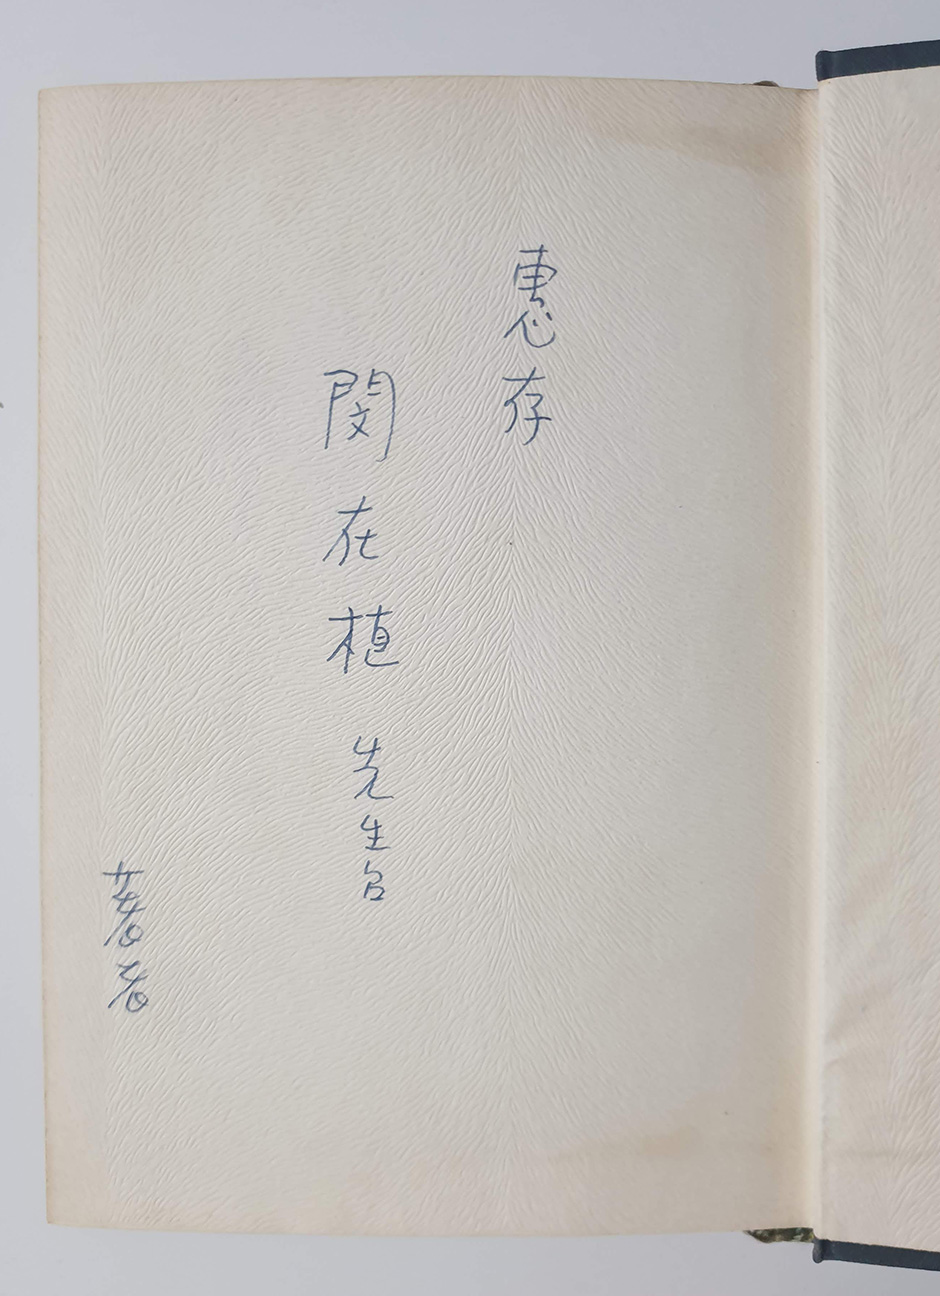 惠存
閔在植先生台
著者